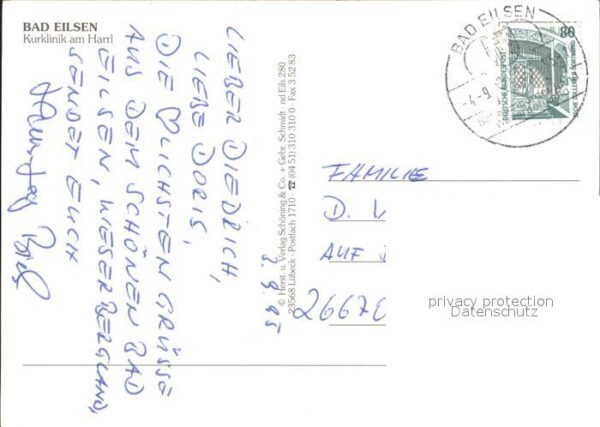 BAD EILSEN
Kurklinik am Harrl
3.9.95
LIEBER DIEDRICH,
LIEBE DORIS,
DIE ♡LICHSTEN GRÜSSE
AUS DEM SCHÖNEN BAD
EILSEN, WESERBERGLAND,
SENDET EUCH
© Herst. u. Verlag Schöning & Co. + Gebr. Schmidt · nd Eils 280
23568 Lübeck · Postfach 1710 ☎ (04 51) 310 310 0 · Fax 3 52 83
BAD EILSEN
-4.-9.
80
DEUTSCHE BUNDESPOST
FAMILIE
D.
AUF
2667
privacy protection
Datenschutz